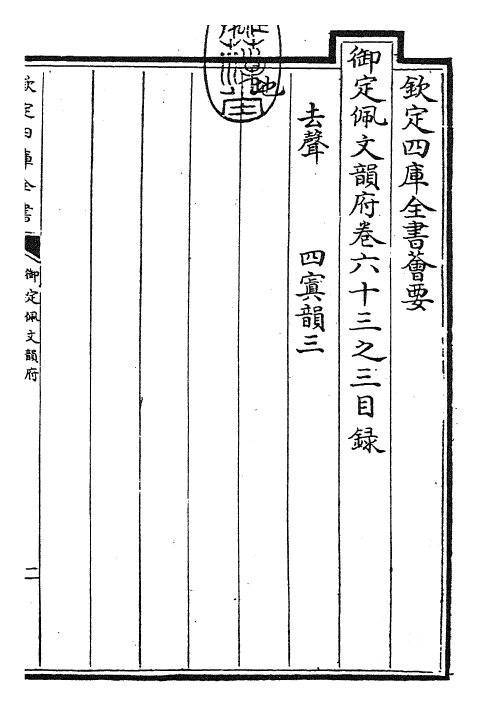 欽定四庫全書薈要
御定佩文韻府卷六十三之三目録
去聲
四寘韻三
欽定四庫全書
御定佩文韻府
二